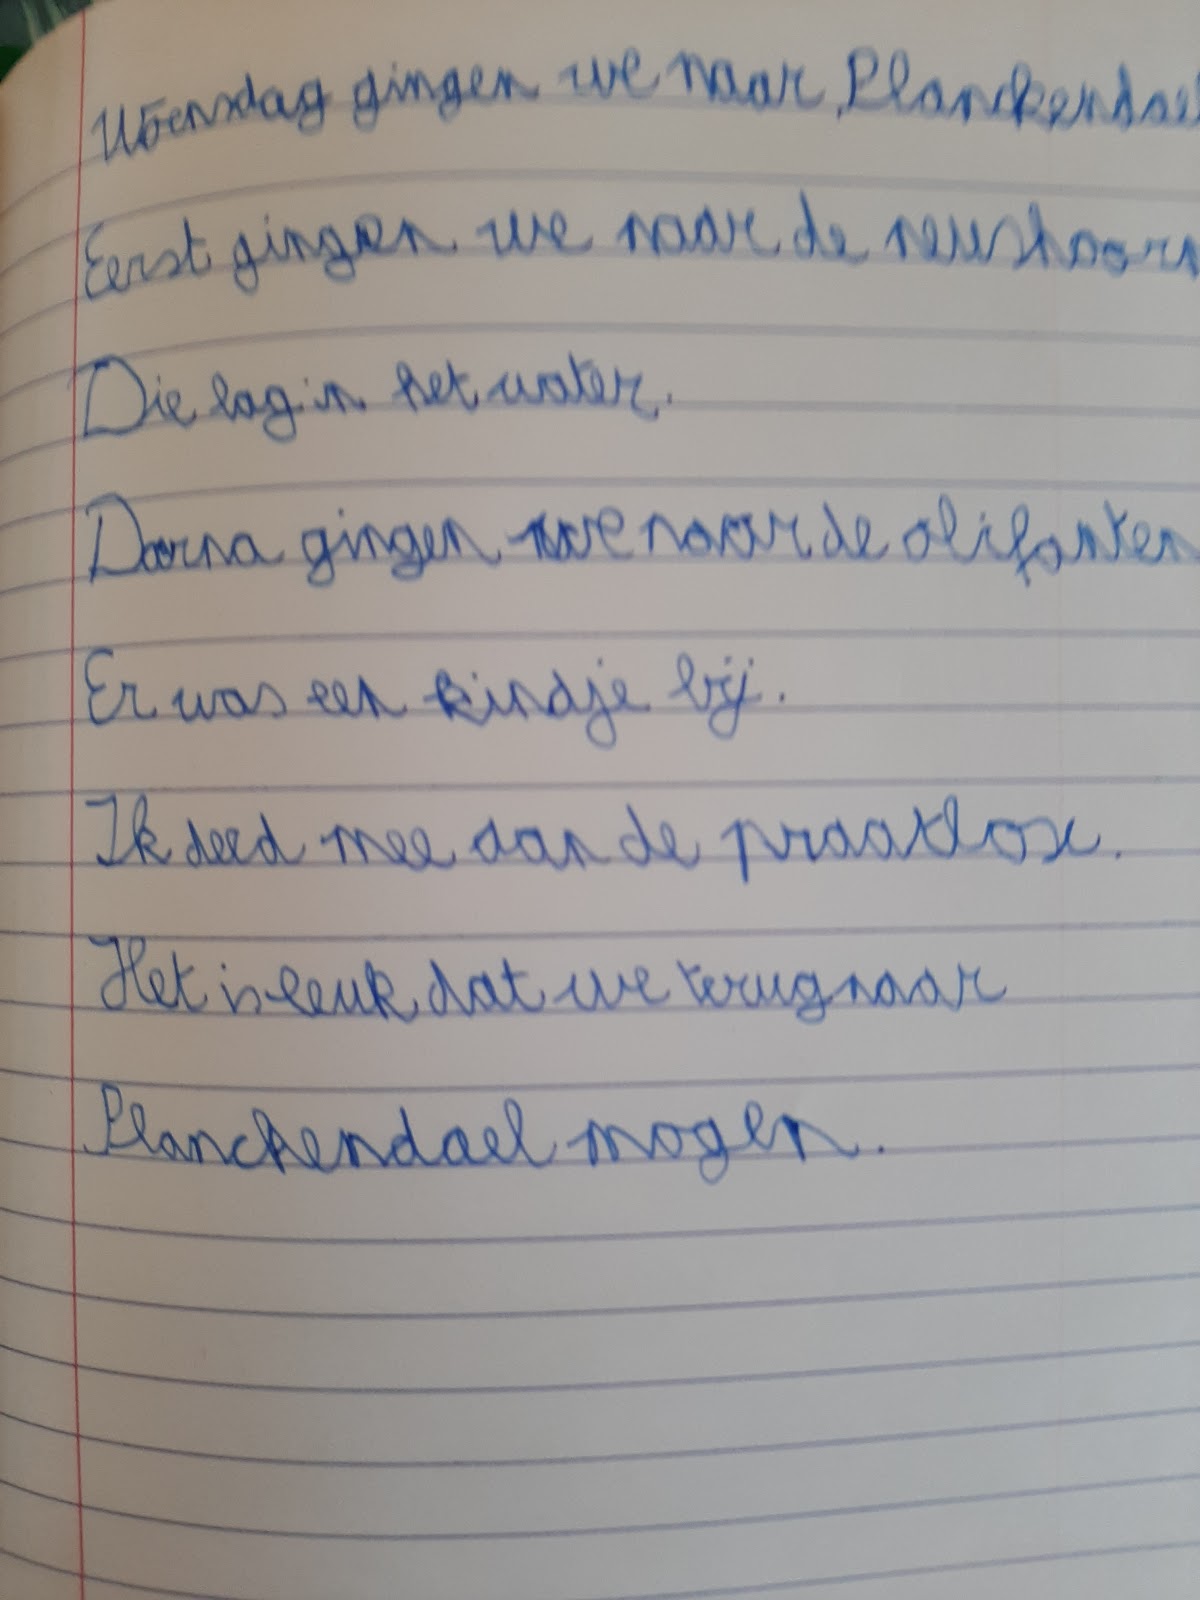 Woensdag gingen we naar Planckendael
Eerst gingen we naar de neushoorn
Die lag in het water.
Daarna gingen we naar de olifanten
Er was een kindje bij.
Ik deed mee aan de praatbox.
Het is leuk dat we terug naar
Planckendael mogen.